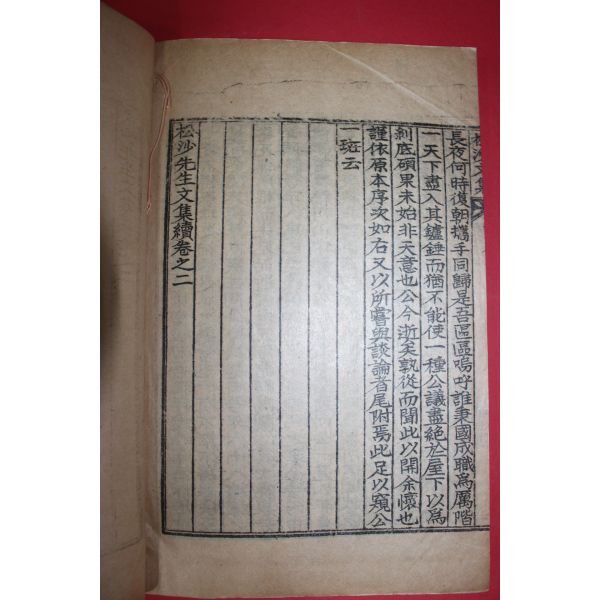 松沙文集
長夜何時復朝攜手同歸是吾區區嗚呼誰秉國成職爲厲階
一天下盡入其鑪錘而猶不能使一種公議盡絶於屋下以爲
剝底碩果未始非天意也公今逝矣孰從而聞此以開余懷也
謹依原本序次如右又以所嘗與談論者尾附焉此足以窺公
一斑云
松沙先生文集續卷之二